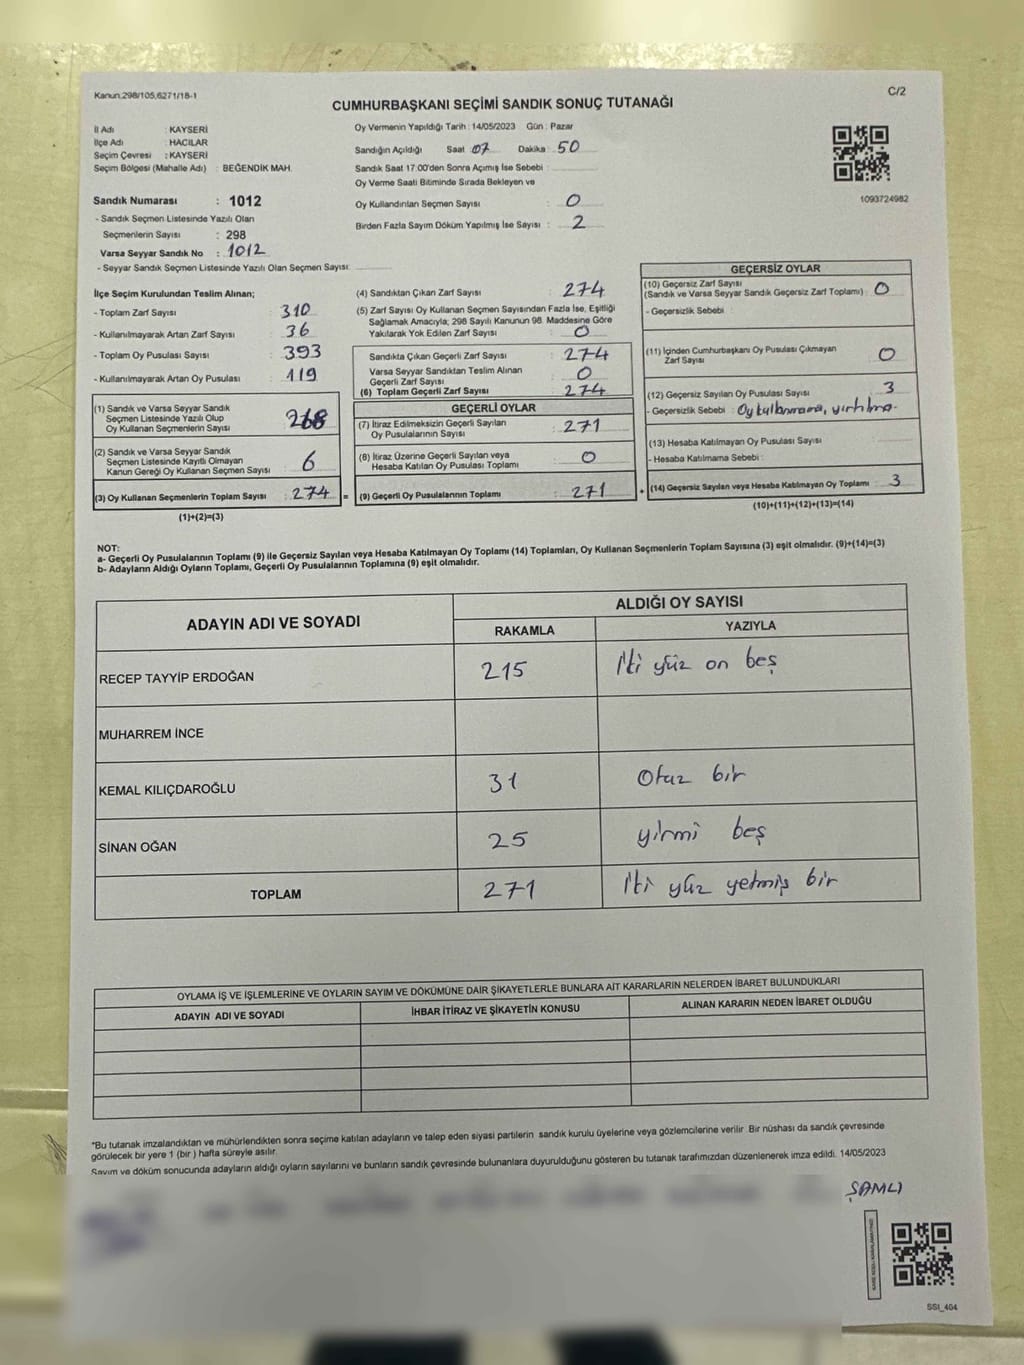 Kanun:298/105,6271/18-1
C/2
CUMHURBAŞKANI SEÇİMİ SANDIK SONUÇ TUTANAĞI
İl Adı : KAYSERİ
İlçe Adı : HACILAR
Seçim Çevresi : KAYSERİ
Seçim Bölgesi (Mahalle Adı) : BEĞENDİK MAH.
Sandık Numarası : 1012
- Sandık Seçmen Listesinde Yazılı Olan
Seçmenlerin Sayısı : 298
Varsa Seyyar Sandık No : 1012
- Seyyar Sandık Seçmen Listesinde Yazılı Olan Seçmen Sayısı:
Oy Vermenin Yapıldığı Tarih : 14/05/2023 Gün : Pazar
Sandığın Açıldığı Saat 07 Dakika 50
Sandık Saat 17:00'den Sonra Açımış İse Sebebi :
Oy Verme Saati Bitiminde Sırada Bekleyen ve
Oy Kullandırılan Seçmen Sayısı : 0
Birden Fazla Sayım Döküm Yapılmış İse Sayısı : 2
1093724982
İlçe Seçim Kurulundan Teslim Alınan;
- Toplam Zarf Sayısı : 310
- Kullanılmayarak Artan Zarf Sayısı : 36
- Toplam Oy Pusulası Sayısı : 393
- Kullanılmayarak Artan Oy Pusulası : 119
(1) Sandık ve Varsa Seyyar Sandık
Seçmen Listesinde Yazılı Olup
Oy Kullanan Seçmenlerin Sayısı : 268
(2) Sandık ve Varsa Seyyar Sandık
Seçmen Listesinde Kayıtlı Olmayan
Kanun Gereği Oy Kullanan Seçmen Sayısı : 6
(3) Oy Kullanan Seçmenlerin Toplam Sayısı : 274 =
(1)+(2)=(3)
(4) Sandıktan Çıkan Zarf Sayısı : 274
(5) Zarf Sayısı Oy Kullanan Seçmen Sayısından Fazla İse, Eşitliği
Sağlamak Amacıyla; 298 Sayılı Kanunun 98. Maddesine Göre
Yakılarak Yok Edilen Zarf Sayısı : 0
Sandıkta Çıkan Geçerli Zarf Sayısı : 274
Varsa Seyyar Sandıktan Teslim Alınan
Geçerli Zarf Sayısı : 0
(6) Toplam Geçerli Zarf Sayısı : 274
GEÇERLİ OYLAR
(7) İtiraz Edilmeksizin Geçerli Sayılan
Oy Pusulalarının Sayısı : 271
(8) İtiraz Üzerine Geçerli Sayılan veya
Hesaba Katılan Oy Pusulası Toplamı : 0
(9) Geçerli Oy Pusulalarının Toplamı : 271 +
GEÇERSİZ OYLAR
(10) Geçersiz Zarf Sayısı
(Sandık ve Varsa Seyyar Sandık Geçersiz Zarf Toplamı) : 0
- Geçersizlik Sebebi :
(11) İçinden Cumhurbaşkanı Oy Pusulası Çıkmayan
Zarf Sayısı : 0
(12) Geçersiz Sayılan Oy Pusulası Sayısı : 3
- Geçersizlik Sebebi : Oy kullanmama, yırtılma.
(13) Hesaba Katılmayan Oy Pusulası Sayısı :
- Hesaba Katılmama Sebebi :
(14) Geçersiz Sayılan veya Hesaba Katılmayan Oy Toplamı : 3
(10)+(11)+(12)+(13)=(14)
NOT:
a- Geçerli Oy Pusulalarının Toplamı (9) ile Geçersiz Sayılan veya Hesaba Katılmayan Oy Toplamı (14) Toplamları, Oy Kullanan Seçmenlerin Toplam Sayısına (3) eşit olmalıdır. (9)+(14)=(3)
b- Adayların Aldığı Oyların Toplamı, Geçerli Oy Pusulalarının Toplamına (9) eşit olmalıdır.
ADAYIN ADI VE SOYADI
ALDIĞI OY SAYISI
RAKAMLA YAZIYLA
RECEP TAYYİP ERDOĞAN 215 İki yüz on beş
MUHARREM İNCE
KEMAL KILIÇDAROĞLU 31 Otuz bir
SİNAN OĞAN 25 yirmi beş
TOPLAM 271 İki yüz yetmiş bir
OYLAMA İŞ VE İŞLEMLERİNE VE OYLARIN SAYIM VE DÖKÜMÜNE DAİR ŞİKAYETLERLE BUNLARA AİT KARARLARIN NELERDEN İBARET BULUNDUKLARI
ADAYIN ADI VE SOYADI İHBAR İTİRAZ VE ŞİKAYETİN KONUSU ALINAN KARARIN NEDEN İBARET OLDUĞU
*Bu tutanak imzalandıktan ve mühürlendikten sonra seçime katılan adayların ve talep eden siyasi partilerin sandık kurulu üyelerine veya gözlemcilerine verilir. Bir nüshası da sandık çevresinde
görülecek bir yere 1 (bir ) hafta süreyle asılır.
Sayım ve döküm sonucunda adayların aldığı oyların sayılarını ve bunların sandık çevresinde bulunanlara duyurulduğunu gösteren bu tutanak tarafımızdan düzenlenerek imza edildi. 14/05/2023
ŞAMLI
SSI_404